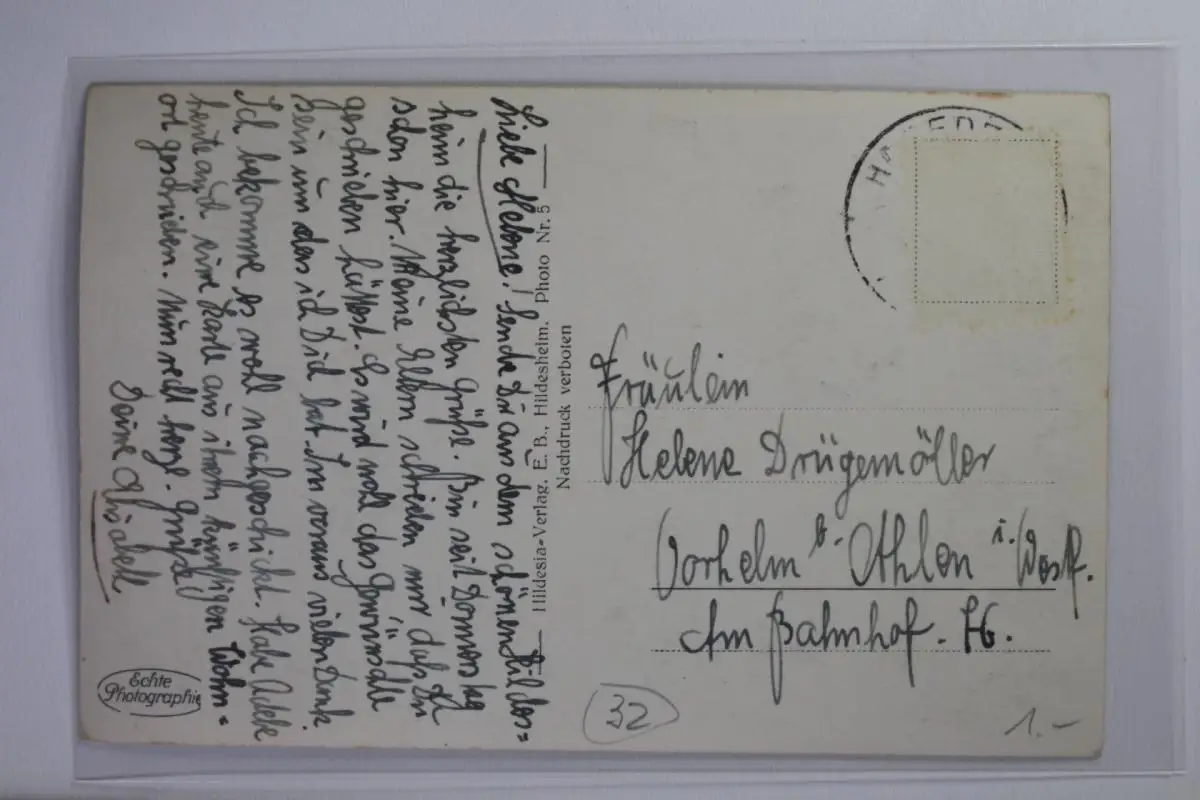 Liebe Helene! Sende Dir aus dem schönen Hildes=
heim die herzlichsten Grüße. Bin seit Donnerstag
schon hier. Meine Eltern schrieben mir daß Du
geschrieben hättest. Es wird wohl das Gewünschte
sein um das ich Dich bat. Im voraus vielen Dank.
Ich bekomme es wohl nachgeschickt. Habe Adele
heute auch eine Karte aus ihrem künftigen Wohn=
ort geschrieben. Nun recht herzl. Grüße
Deine
Echte
Photographie
Hildesia-Verlag, E. B., Hildesheim. Photo Nr. 5
Nachdruck verboten
Fräulein
Helene Drügemöller
Vorhelm b. Ahlen i. Westf.
Am Bahnhof. 76.
32
1.-